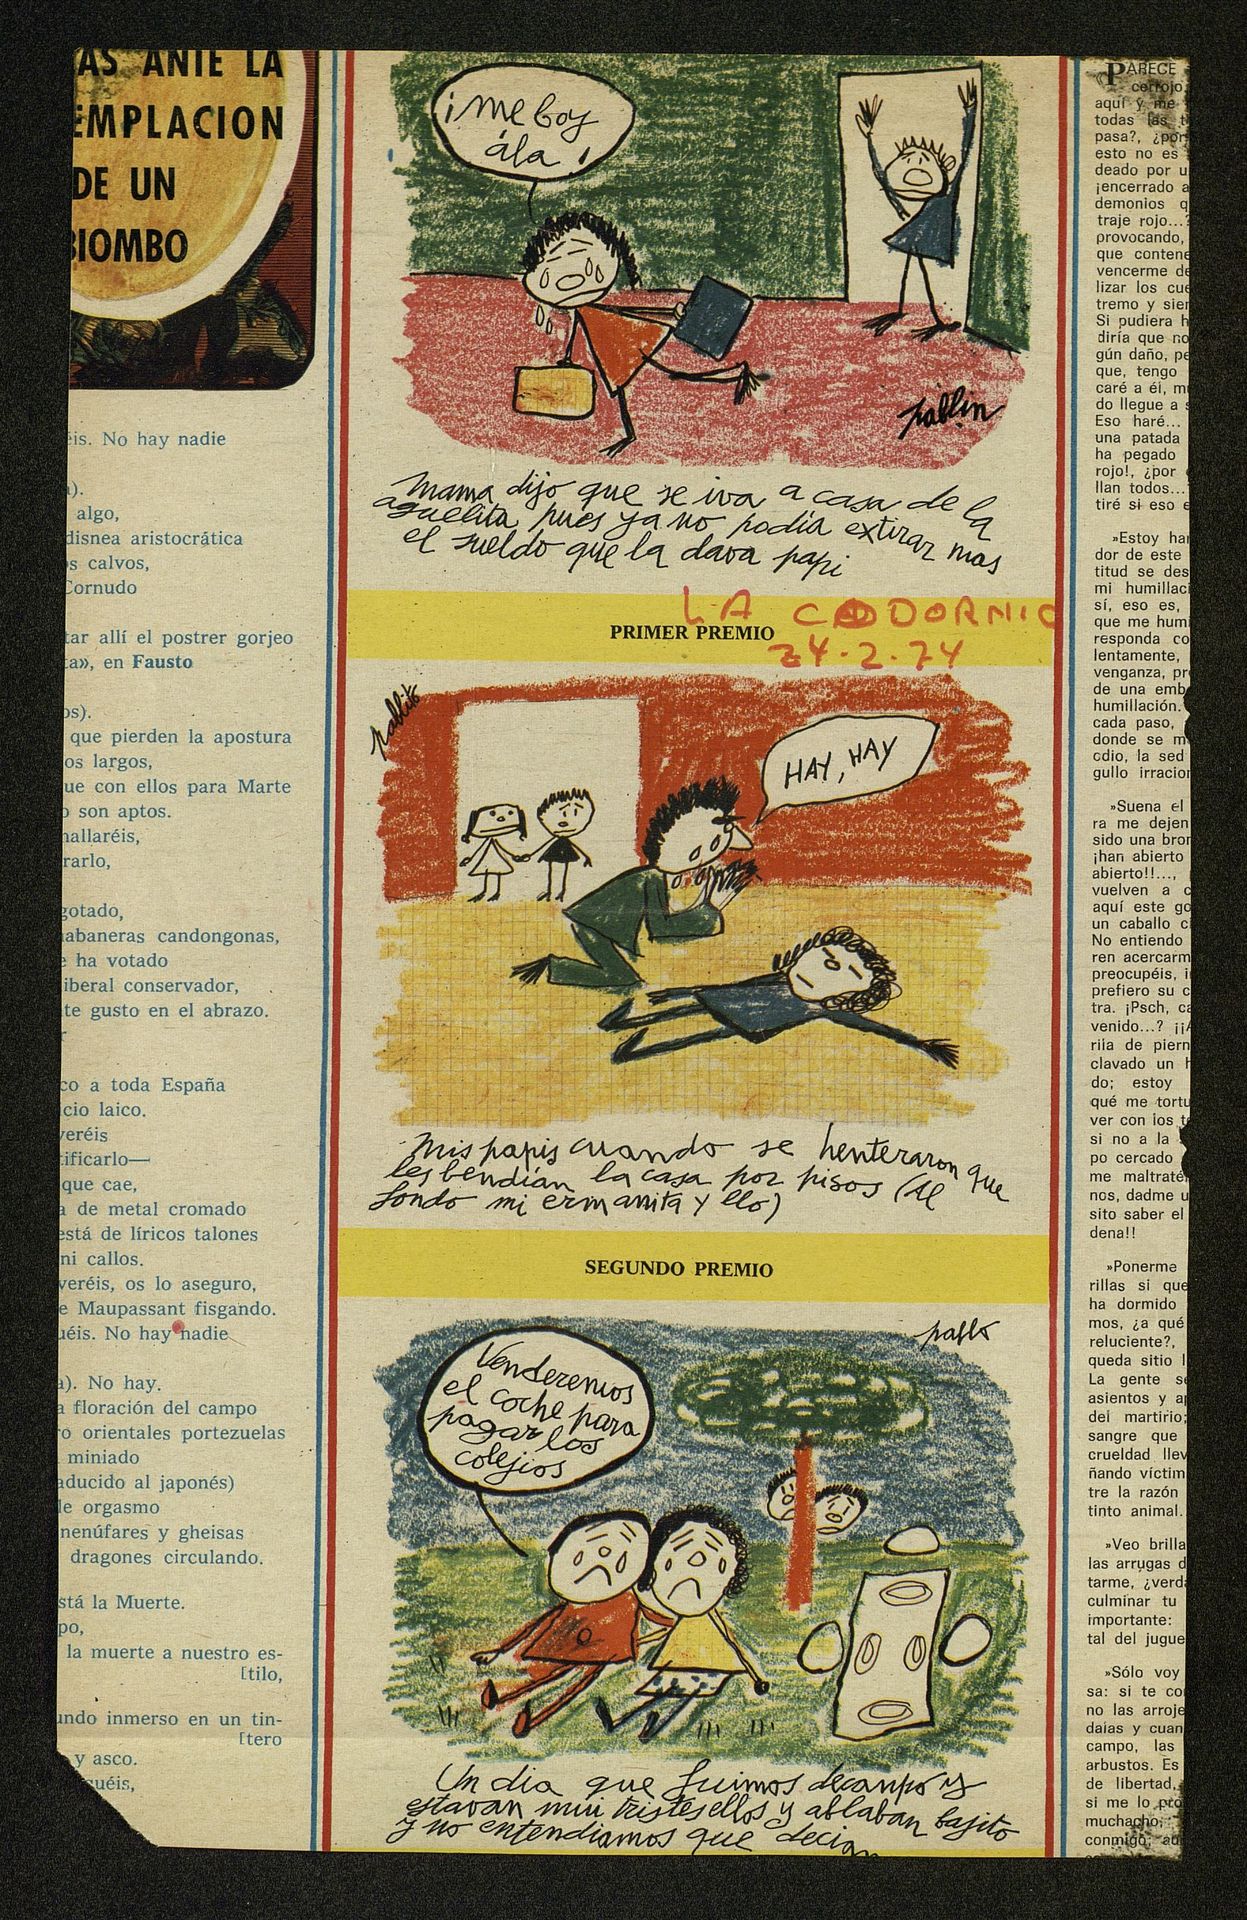 AS ANTE LA
EMPLACION
DE UN
BIOMBO
éis. No hay nadie
).
algo,
disnea aristocrática
s calvos,
Cornudo
tar allí el postrer gorjeo
ta», en Fausto
os).
que pierden la apostura
os largos,
ue con ellos para Marte
o son aptos.
hallaréis,
rarlo,
gotado,
abaneras candongonas,
e ha votado
liberal conservador,
te gusto en el abrazo.
r
co a toda España
cio laico.
veréis
tificarlo—
que cae,
a de metal cromado
está de líricos talones
ni callos.
veréis, os lo aseguro,
e Maupassant fisgando.
uéis. No hay nadie
a). No hay.
a floración del campo
ro orientales portezuelas
miniado
aducido al japonés)
de orgasmo
nenúfares y gheisas
dragones circulando.
stá la Muerte.
po,
la muerte a nuestro es-
[tilo,
undo inmerso en un tin-
[tero
y asco.
cuéis,
¡Me boy
ála!
pablin
Mama dijo que se iva a casa de la
aguelita pues ya no podia extirar mas
el sueldo que la dava papi
PRIMER PREMIO
LA CODORNIC
24.2.74
pablito
HAY, HAY
Mis papis cuando se henteraron que
les bendian la casa por pisos (Al
fondo mi ermanita y ello)
SEGUNDO PREMIO
pablo
Venderemos
el coche para
pagar los
colejios
Un dia que fuimos decanpo y
estavan mui tristes ellos y ablaban bajito
y no entendiamos que decian
«PARECE
cerrojo,
aquí y me
todas las t
pasa?, ¿por
esto no es
deado por u
¡encerrado a
demonios q
traje rojo...?
provocando,
que contene
vencerme de
lizar los cue
tremo y sier
Si pudiera h
diría que no
gún daño, pe
que, tengo
caré a él, mu
do llegue a s
Eso haré...
una patada
ha pegado
rojo!, ¿por
llan todos...
tiré si eso e
»Estoy har
dor de este
titud se des
mi humillaci
sí, eso es,
que me humi
responda co
lentamente,
venganza, pr
de una emb
humillación.
cada paso,
donde se m
cdio, la sed
gullo irracior
»Suena el
ra me dejen
sido una bron
¡han abierto
abierto!!...,
vuelven a c
aquí este go
un caballo c
No entiendo
ren acercarm
preocupéis, i
prefiero su c
tra. ¡Psch, ca
venido...? ¡¡A
rila de piern
clavado un h
do; estoy
qué me tortu
ver con los t
si no a la
po cercado
me maltraté
nos, dadme u
sito saber el
dena!!
»Ponerme
rillas si que
ha dormido
mos, ¿a qué
reluciente?,
queda sitio l
La gente se
asientos y ap
del martirio;
sangre que
crueldad llev
ñando víctim
tre la razón
tinto animal.
»Veo brilla
las arrugas d
tarme, ¿verda
culminar tu
importante:
tal del jugue
»Sólo voy
sa: si te co
no las arroje
daias y cuan
campo, las
arbustos. Es
de libertad,
si me lo pro
muchacho,
conmigo, au